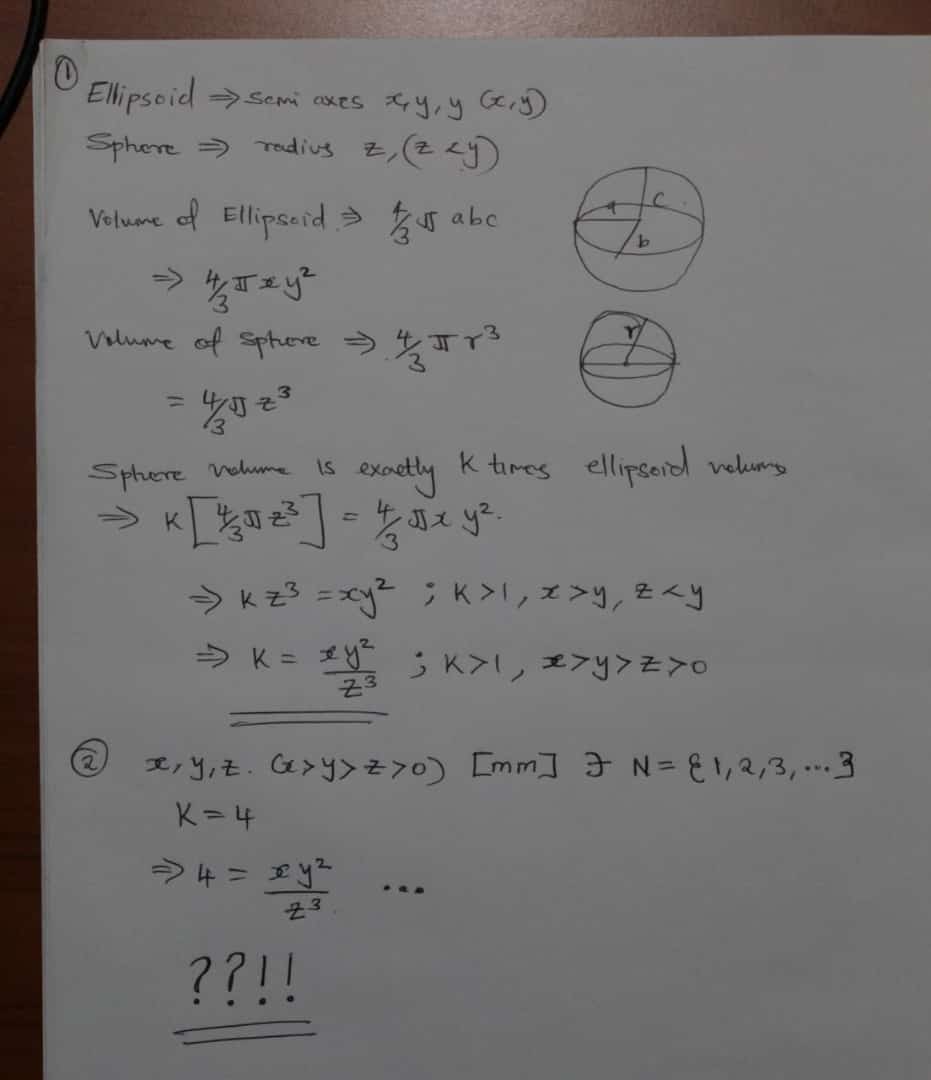 ①
Ellipsoid ⇒ semi axes x, y, y (x, y)
Sphere ⇒ radius z, (z < y)
Volume of Ellipsoid ⇒ 4/3 π abc
a c b
⇒ 4/3 π x y²
Volume of Sphere ⇒ 4/3 π r³
r
= 4/3 π z³
Sphere volume is exactly K times ellipsoid volume
⇒ K [4/3 π z³] = 4/3 π x y².
⇒ K z³ = xy² ; K>1, x>y, z<y
⇒ K = xy²/z³ ; K>1, x>y>z>0
② x, y, z. (x>y>z>0) [mm] ∃ N = {1, 2, 3, ...}
K = 4
⇒ 4 = xy²/z³ ...
??!!